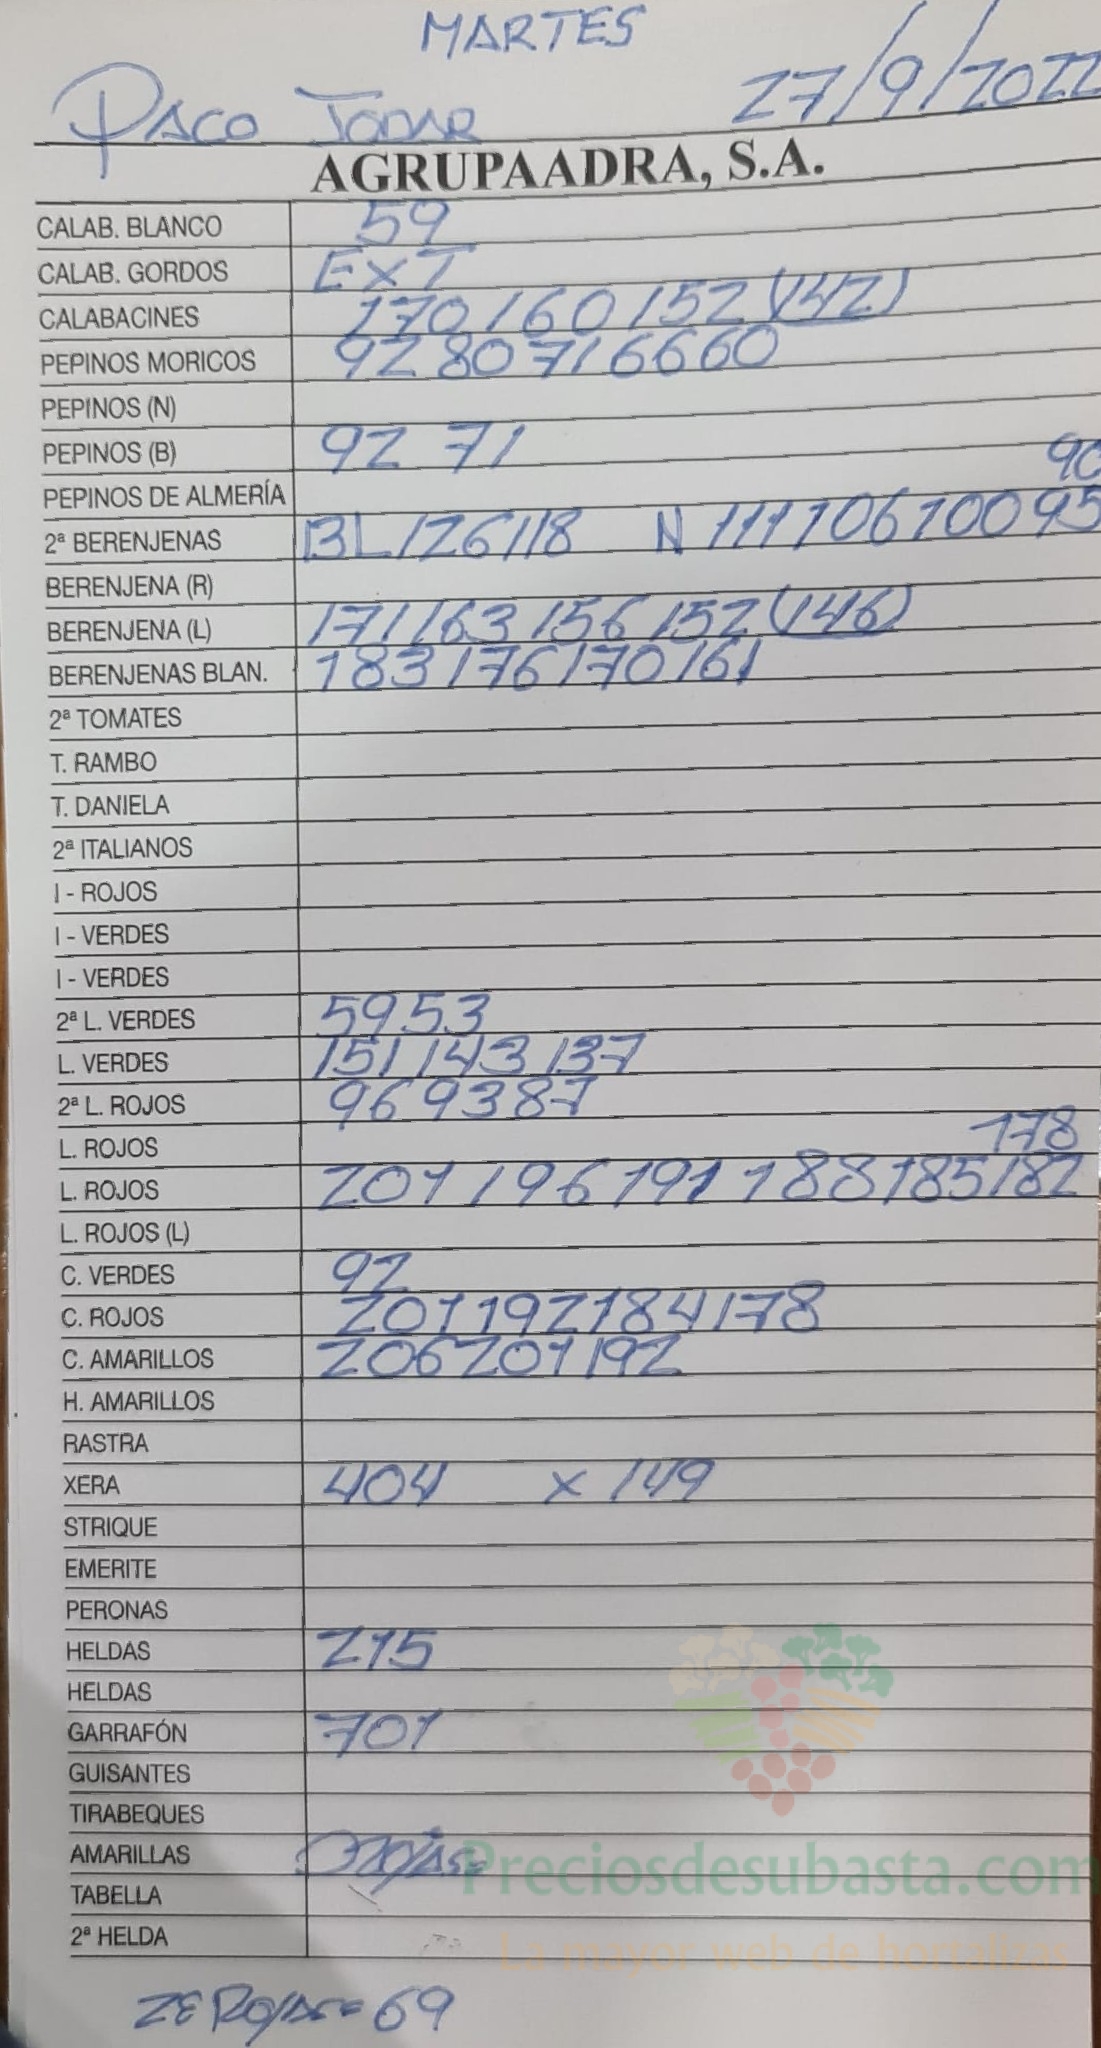 MARTES
PACO JODAR 27/9/2022
AGRUPAADRA, S.A.
CALAB. BLANCO 59
CALAB. GORDOS EXT
CALABACINES 170 160 152 (142)
PEPINOS MORICOS 92 80 71 66 60
PEPINOS (N)
PEPINOS (B) 92 71
90
PEPINOS DE ALMERÍA
2ª BERENJENAS BL 126 118 N 111 106 100 95
BERENJENA (R)
BERENJENA (L) 171 163 156 152 (146)
BERENJENAS BLAN. 183 176 170 161
2ª TOMATES
T. RAMBO
T. DANIELA
2ª ITALIANOS
I - ROJOS
I - VERDES
I - VERDES
2ª L. VERDES 59 53
L. VERDES 151 143 137
2ª L. ROJOS 96 93 87
L. ROJOS 178
L. ROJOS 201 196 191 188 185 182
L. ROJOS (L)
C. VERDES 92
C. ROJOS 201 192 184 178
C. AMARILLOS 206 201 192
H. AMARILLOS
RASTRA
XERA 404 x 149
STRIQUE
EMERITE
PERONAS
HELDAS 215
HELDAS
GARRAFÓN 701
GUISANTES
TIRABEQUES
AMARILLAS
Preciosdesubasta.com
TABELLA
2ª HELDA
La mayor web de hortalizas
69